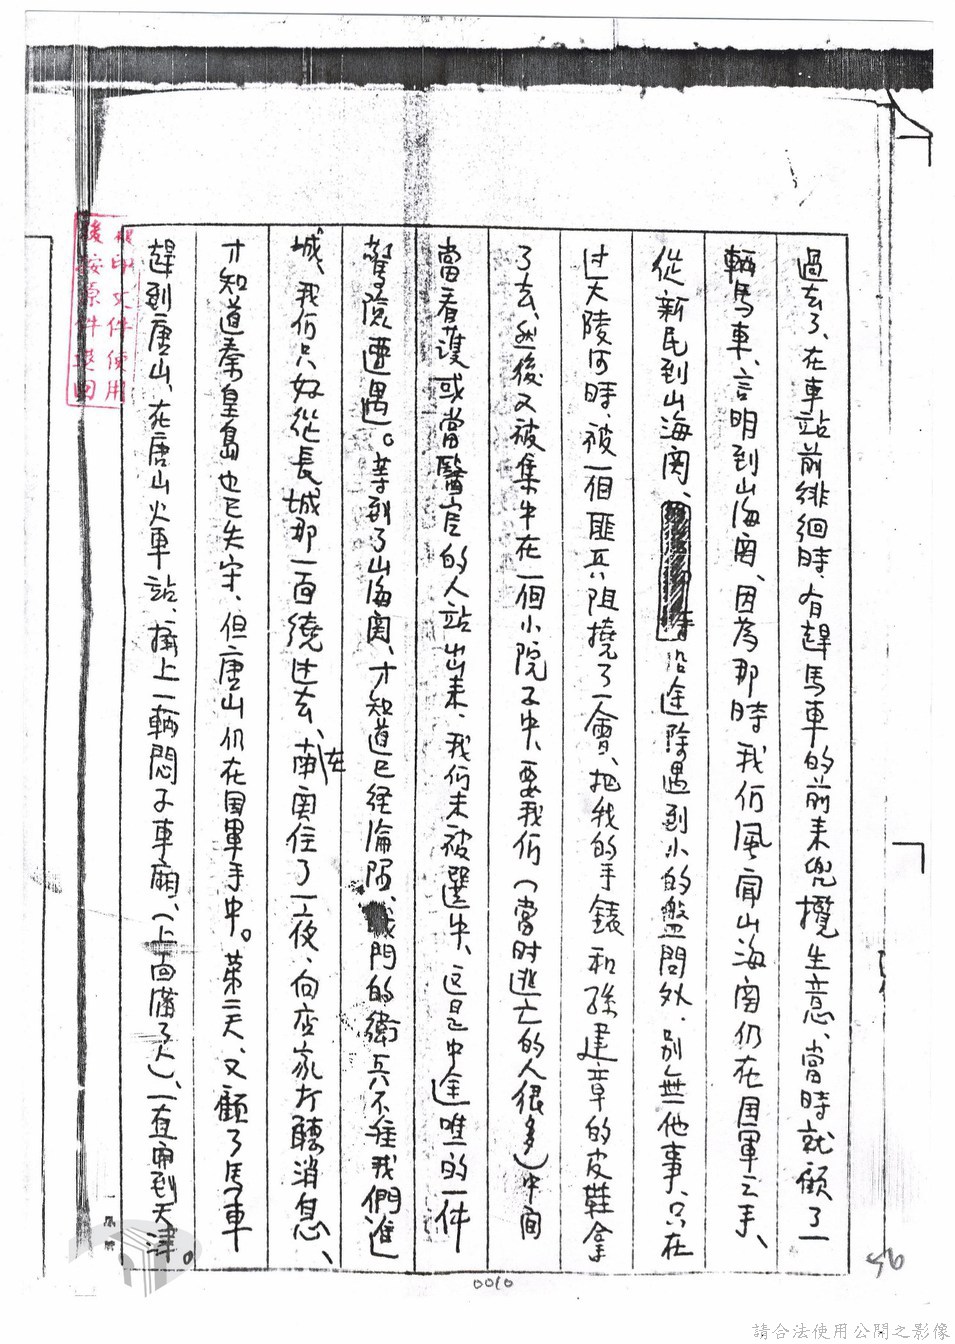 過去了、在車站前徘徊時、有趕馬車的前来兜攬生意、當時就顧了一
輛馬車、言明到山海関、因為那時我们風聞山海関仍在国軍之手、
從新民到山海関、沿途除遇到小的盤問外、別無他事、只在
过大陵河時、被一個匪兵阻撓了一會、把我的手錶和孫建章的皮鞋拿
了去、然後又被集中在一個小院子中、要我们（當时逃亡的人很多）中间
當看護或當醫官的人站出来、我们未被選中、这是中途唯一的一件
驚險遭遇。等到了山海関、才知道已经淪陷、城門的衛兵不准我們進
城、我们只好从長城那一面繞过去、在南関住了一夜、向店家打聽消息、
才知道秦皇島也已失守、但唐山仍在国軍手中。第二天、又顧了馬車
趕到唐山、在唐山火車站、擠上一輛悶子車廂、（上面滿了人）、一直開到天津。
影印文件使用
後按原件退回
56
0010
請合法使用公開之影像